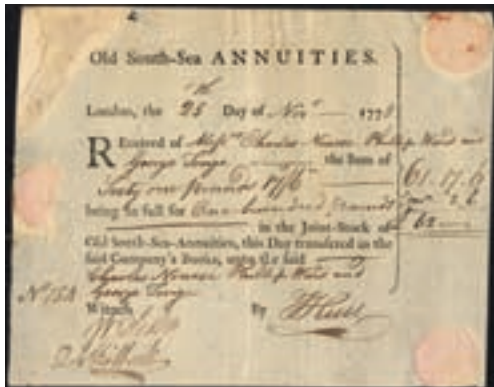 Old South-Sea ANNUITIES.
London, the 25th Day of Novr 177
Received of Messrs Charles Phillip Ward and
George the Sum of
Sixty one pounds 17/6 61. 17. 6
being in full for One hundred pounds 2. 6
in the Joint-Stock of £ 62
Old South-Sea-Annuities, this Day transferred in the
said Company's Books, unto the said
Charles Phillip Ward and
No George
Witness By